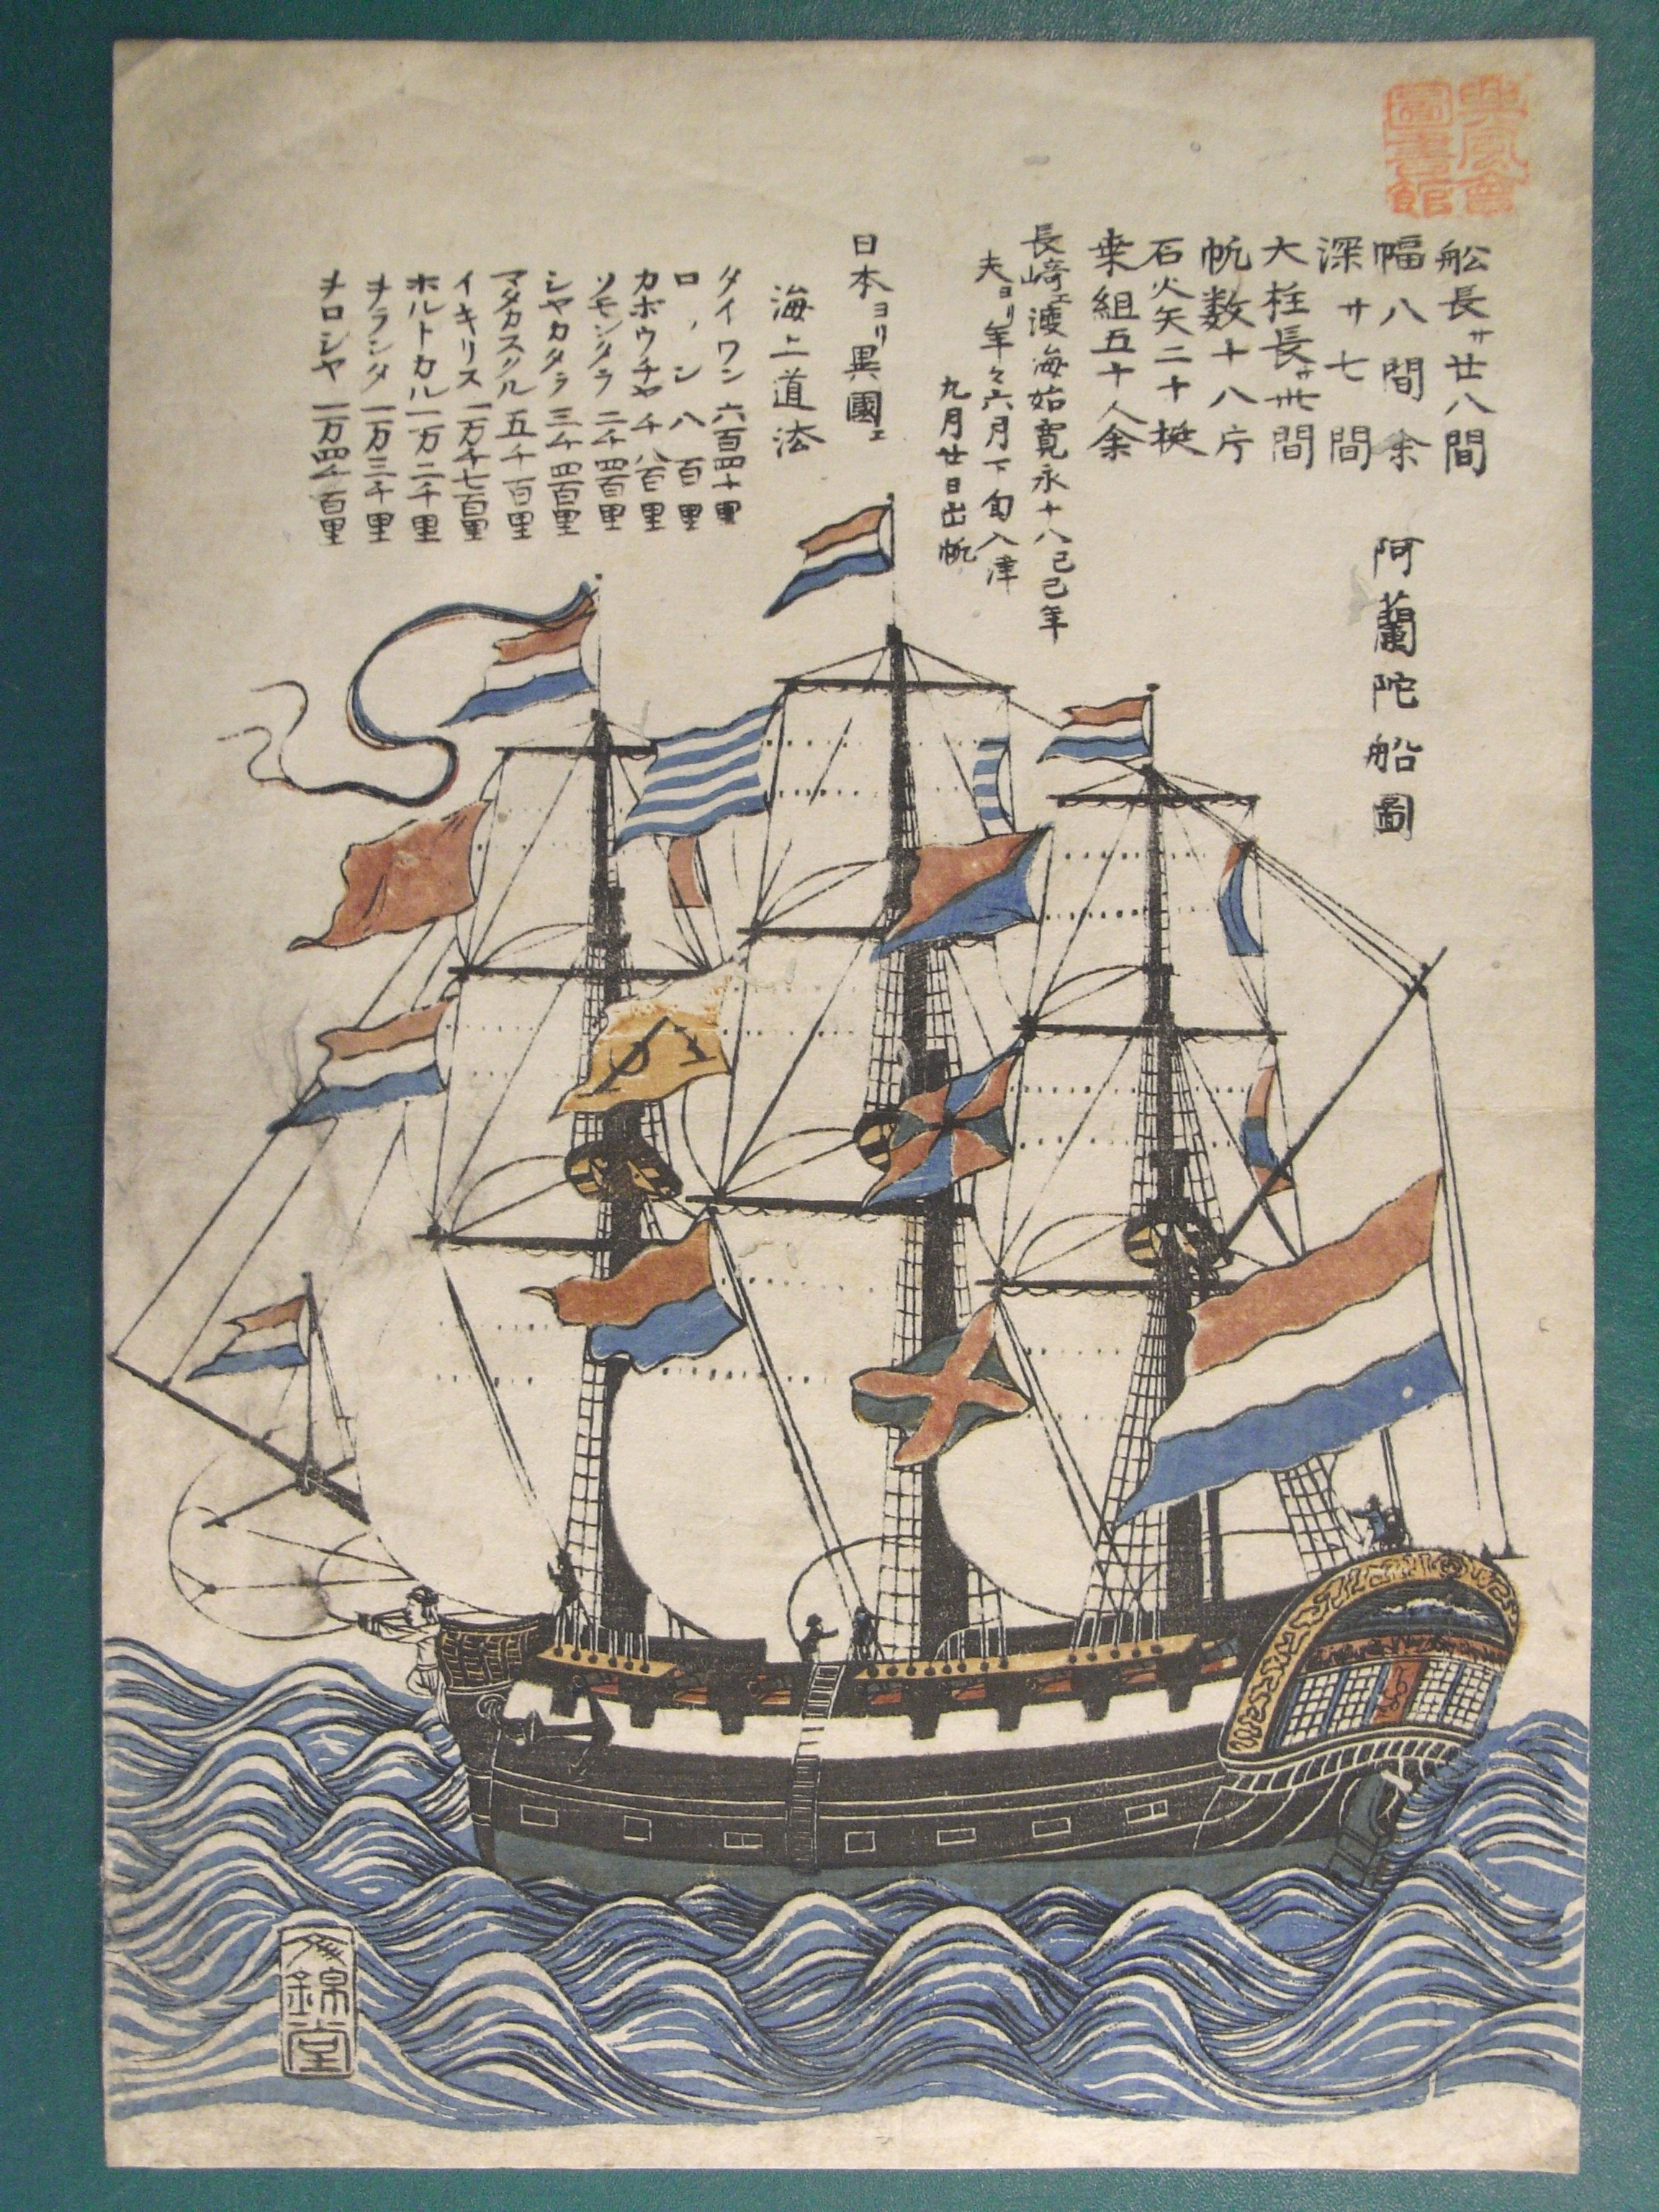 船長サ廿八間
幅八間余
深サ七間
大柱長サ卅間
帆数十八庁
石火矢二十挺
乗組五十人余
阿蘭陀船圖
長崎エ渡海始寛永十八己巳年
夫ヨリ年々六月下旬入津
九月廿日出帆
日本ヨリ異國エ
海上道法
タイワン 六百四十里
ロヽン 八百里
カボウチヤ 千八百里
ソモンタラ 二千四百里
シヤカタラ 三千四百里
マタカスクル 五千百里
イキリス 一万千七百里
ホルトカル 一万二千里
ヲランダ 一万三千里
ヲロシヤ 一万四千百里
圖書館
錦堂